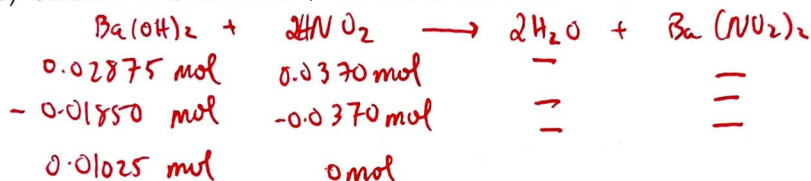 Ba(OH)₂ + 2HNO₂ ⟶ 2H₂O + Ba(NO₂)₂
0.02875 mol 0.0370 mol – –
- 0.01850 mol -0.0370 mol – –
0.01025 mol 0 mol – –